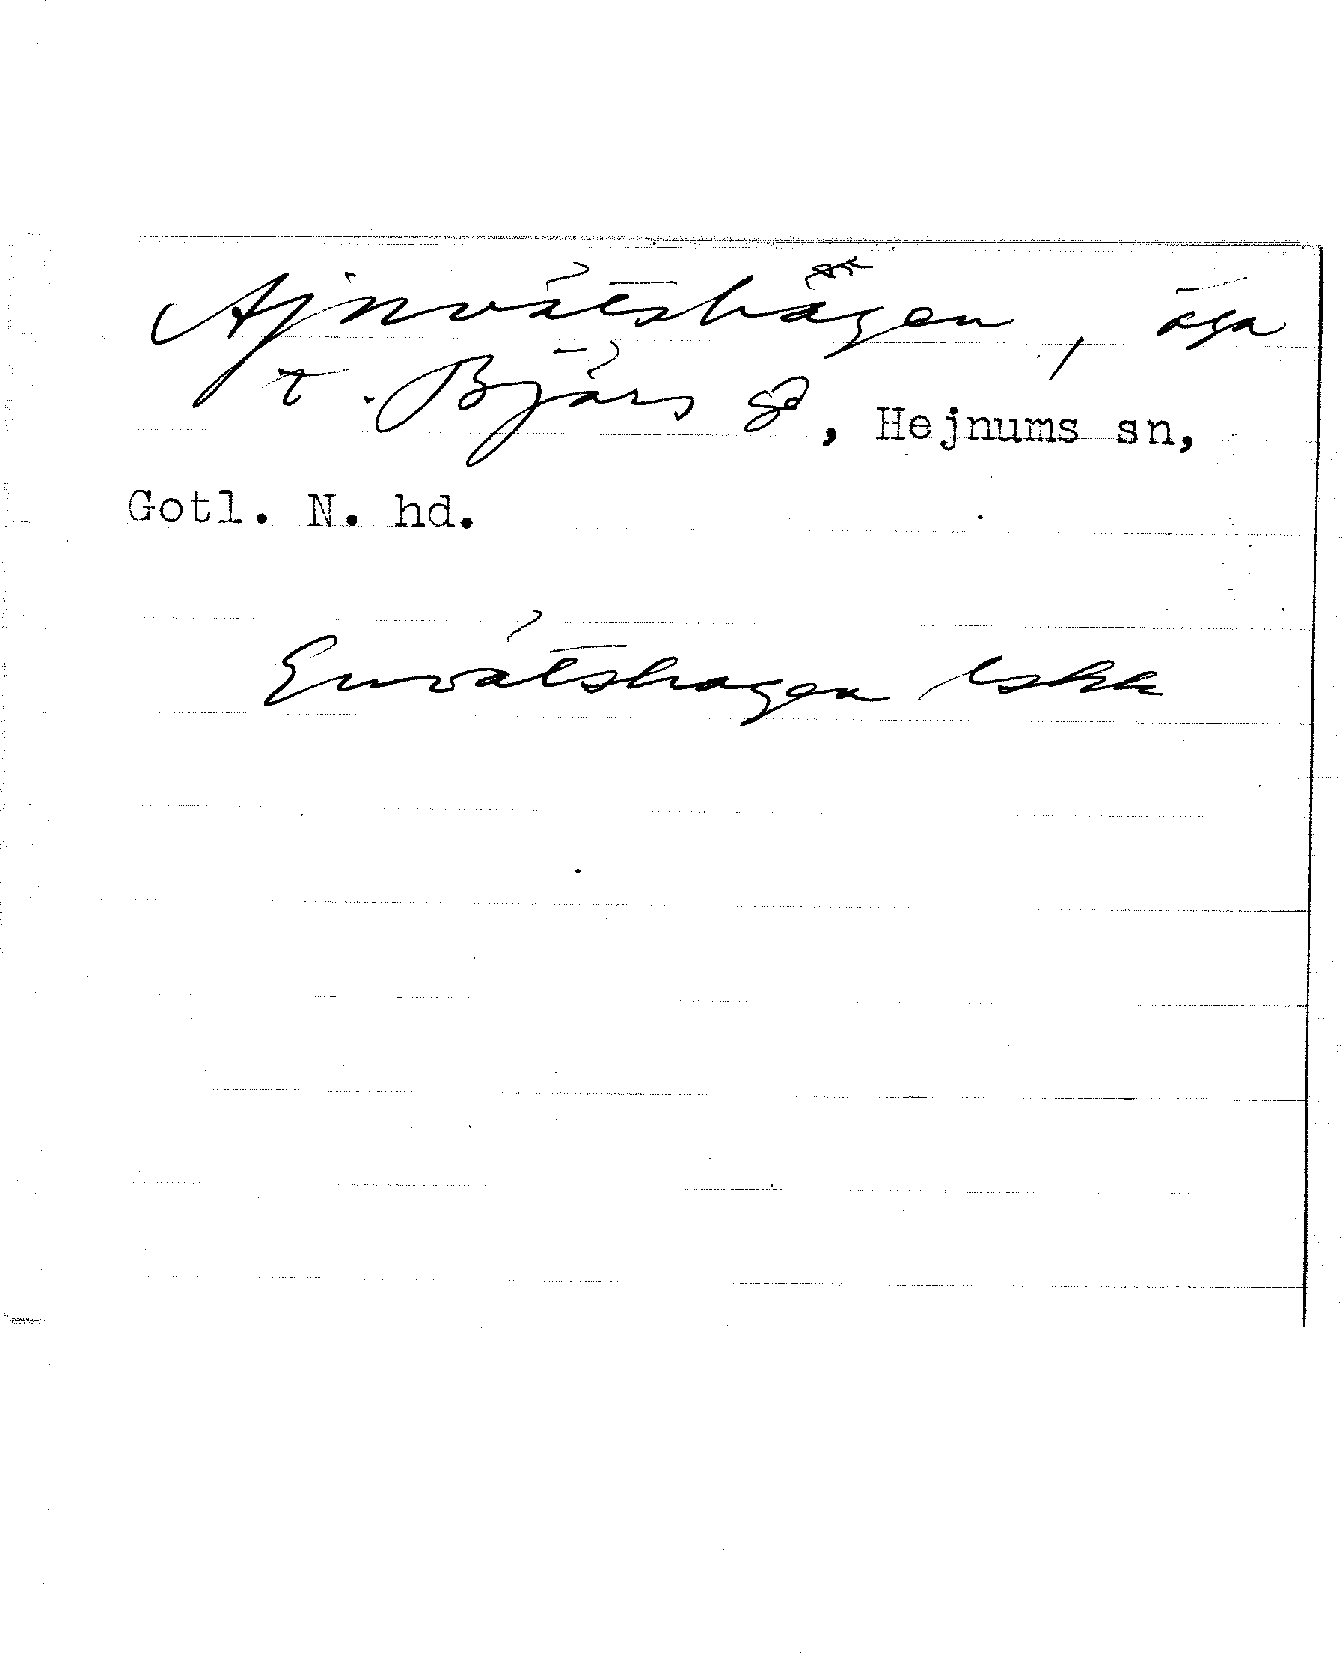 Ajnvätshägen, äga
t. Bjärs gd, Hejnums sn,
Gotl. N. hd.
Envätshagen